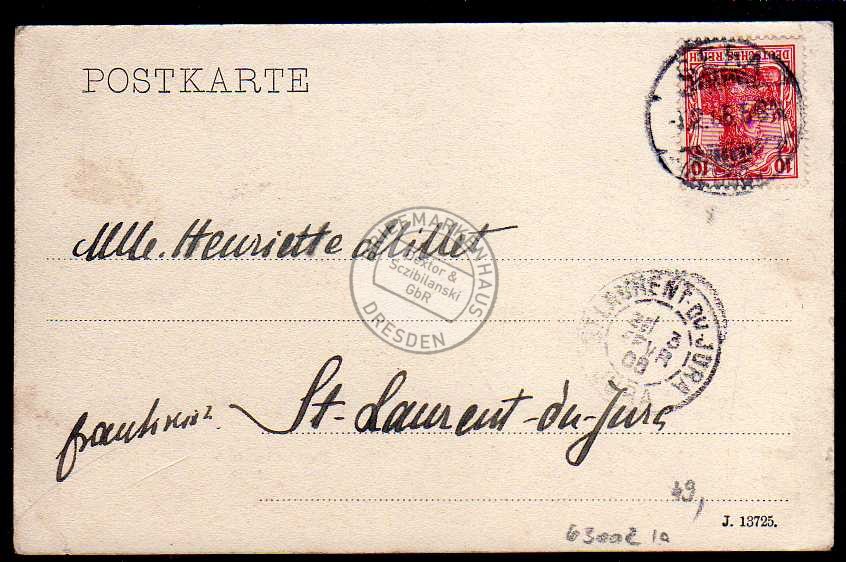 POSTKARTE
DEUTSCHES REICH
10 10
Mlle. Henriette Millet
BRIEFMARKENHAUS
Dektor &
Sczibilanski
GbR
DRESDEN
ST LAURENT-DU-JURA
JURA
St-Laurent-du-Jura
frankreich
49,
J. 13725.
63002 1a